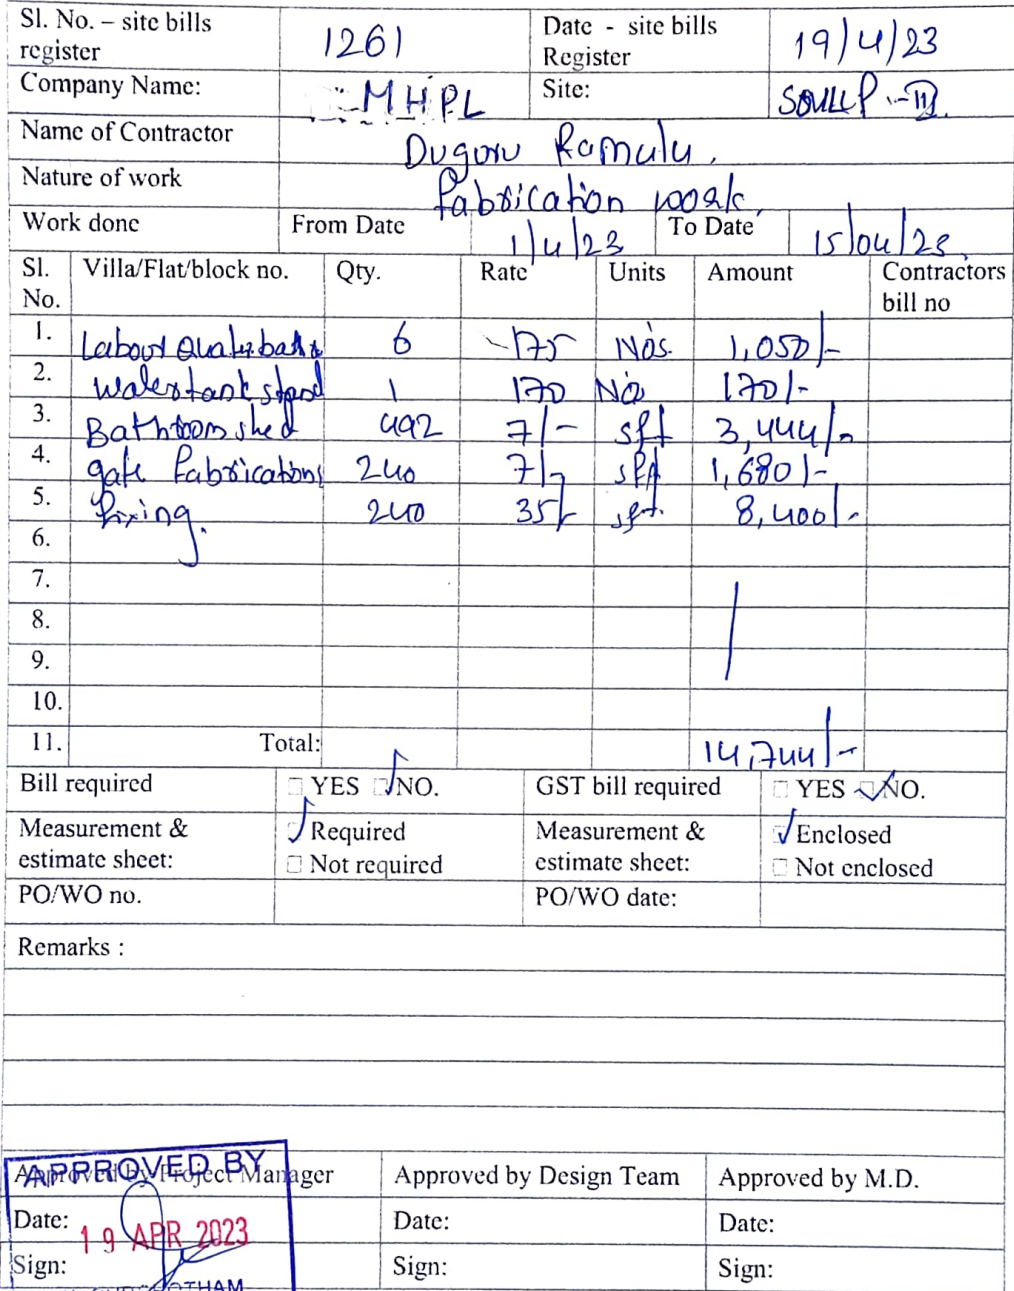 Sl. No. – site bills register 1261 Date - site bills Register 19/4/23
Company Name: MHPL Site: SOVLLP -III
Name of Contractor Duguru Ramulu.
Nature of work Fabrication work.
Work done From Date 1/4/23 To Date 15/04/23
Sl. No. Villa/Flat/block no. Qty. Rate Units Amount Contractors bill no
1. Labour Quater 6 175 Nos. 1,050/-
2. Waterstank stand 1 170 No 170/-
3. Bathroom shed 492 7/- sft 3,444/-
4. gate Fabrications 240 7/- sft 1,680/-
5. Fixing. 240 35/- sft. 8,400/-
6.
7.
8.
9.
10.
11. Total: 14,744/-
Bill required YES NO. GST bill required YES NO.
Measurement & estimate sheet: Required Not required Measurement & estimate sheet: Enclosed Not enclosed
PO/WO no. PO/WO date:
Remarks :
APPROVED BY
Approved by Project Manager Approved by Design Team Approved by M.D.
Date: 19 APR 2023 Date: Date:
Sign: Sign: Sign: